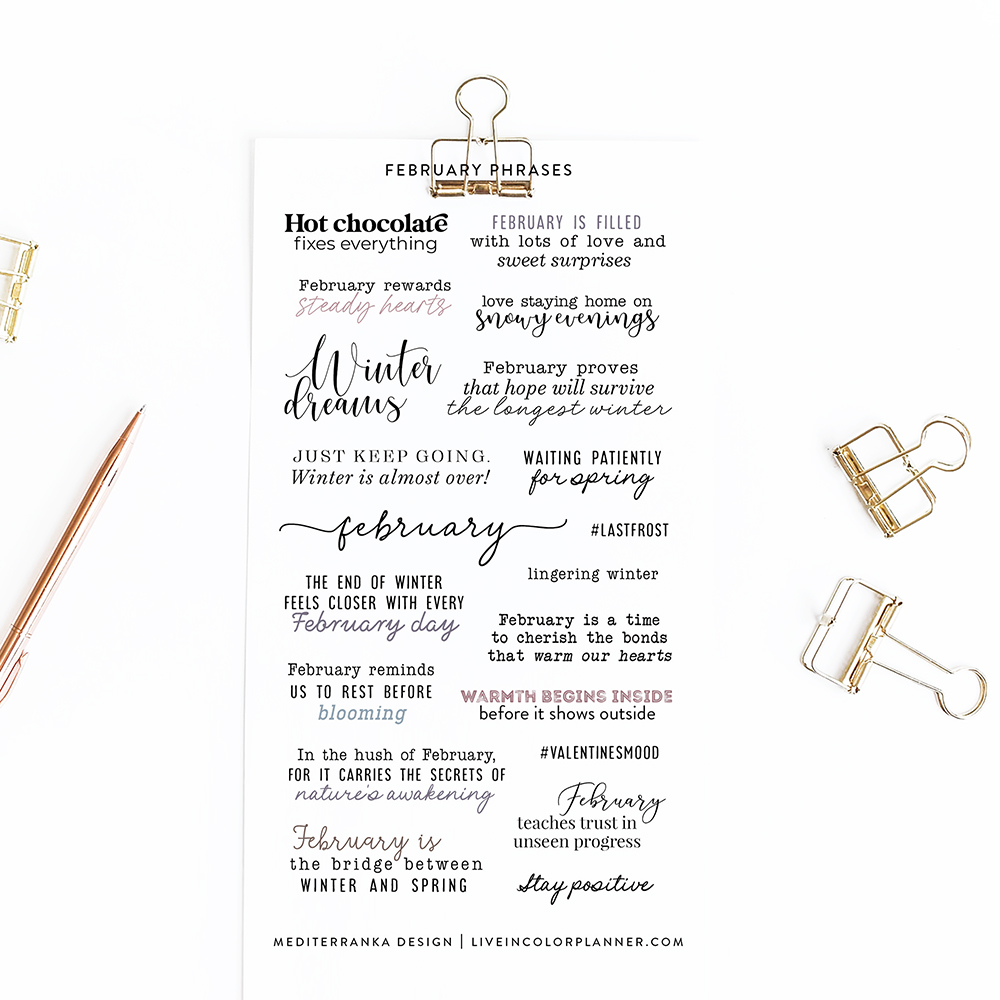 FEBRUARY PHRASES
Hot chocolate
fixes everything
FEBRUARY IS FILLED
with lots of love and
sweet surprises
February rewards
steady hearts
love staying home on
snowy evenings
Winter
dreams
February proves
that hope will survive
the longest winter
JUST KEEP GOING.
Winter is almost over!
WAITING PATIENTLY
for spring
february
#LASTFROST
lingering winter
THE END OF WINTER
FEELS CLOSER WITH EVERY
February day
February is a time
to cherish the bonds
that warm our hearts
February reminds
US TO REST BEFORE
blooming
WARMTH BEGINS INSIDE
before it shows outside
#VALENTINESMOOD
In the hush of February,
FOR IT CARRIES THE SECRETS OF
nature's awakening
February
teaches trust in
unseen progress
February is
the bridge between
WINTER AND SPRING
Stay positive
MEDITERRANKA DESIGN | LIVEINCOLORPLANNER.COM